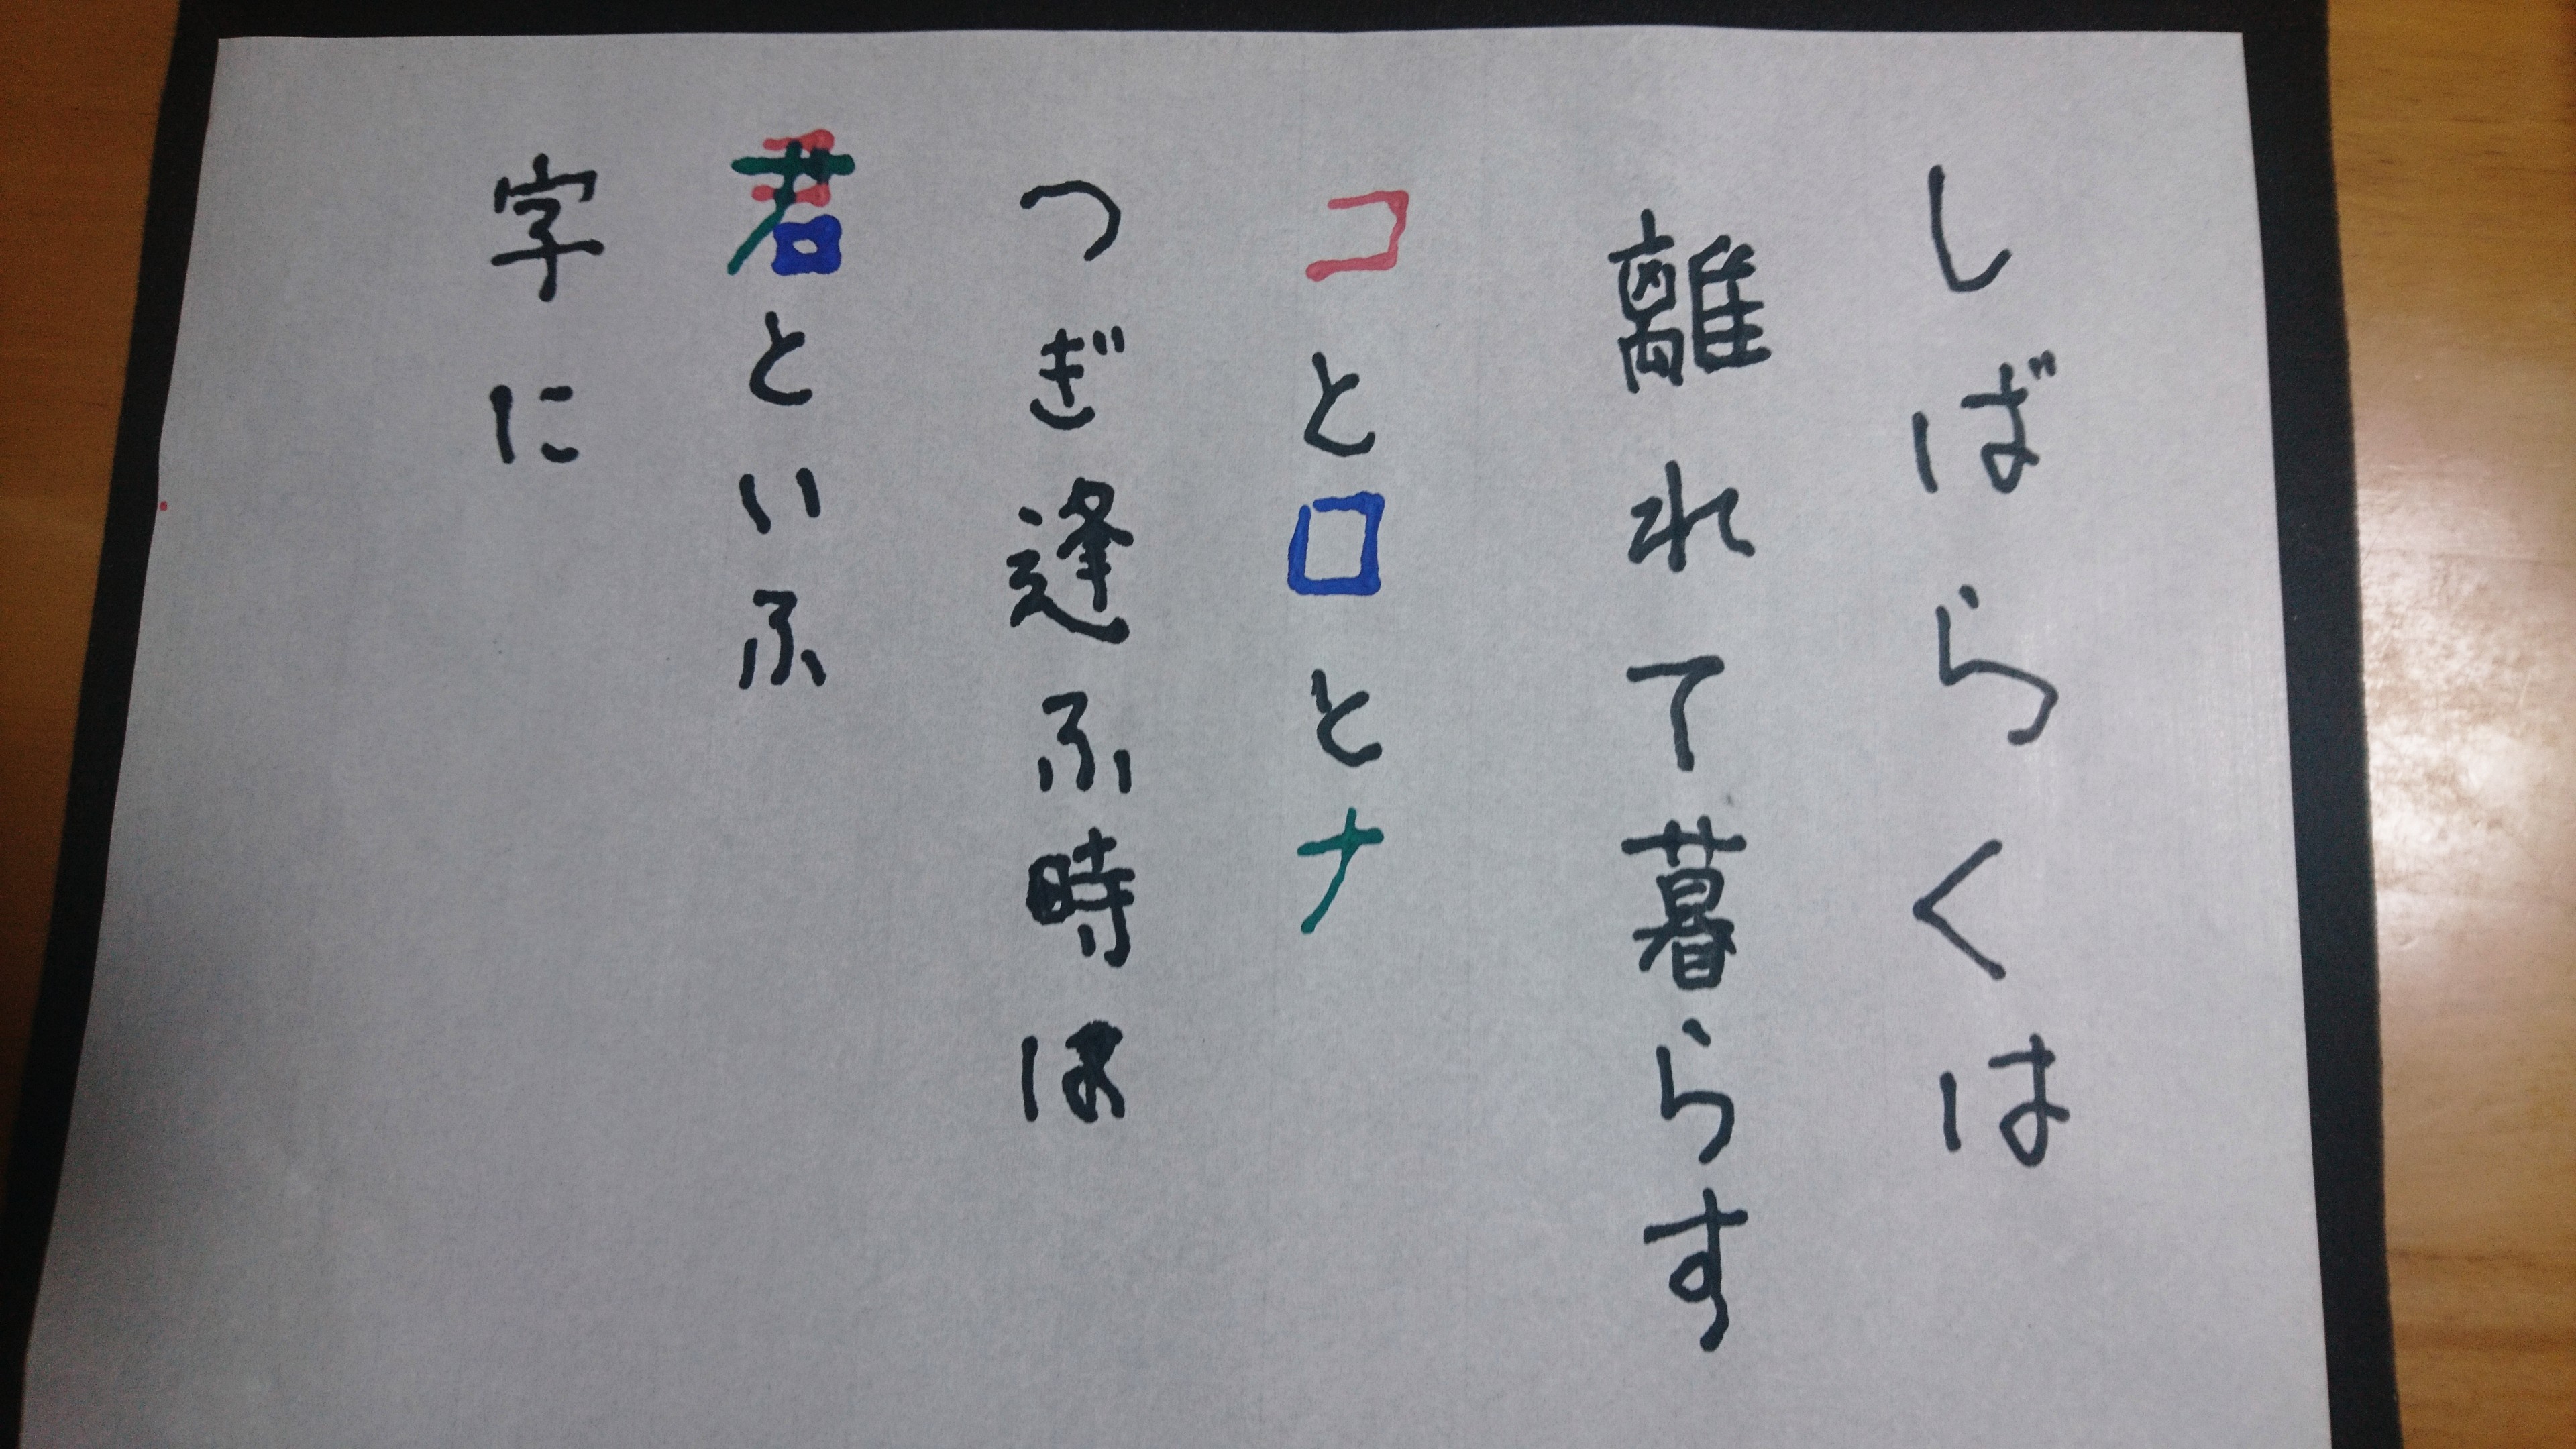 しばらくは
離れて暮らす
コとロとナ
つぎ逢ふ時は
君といふ
字に